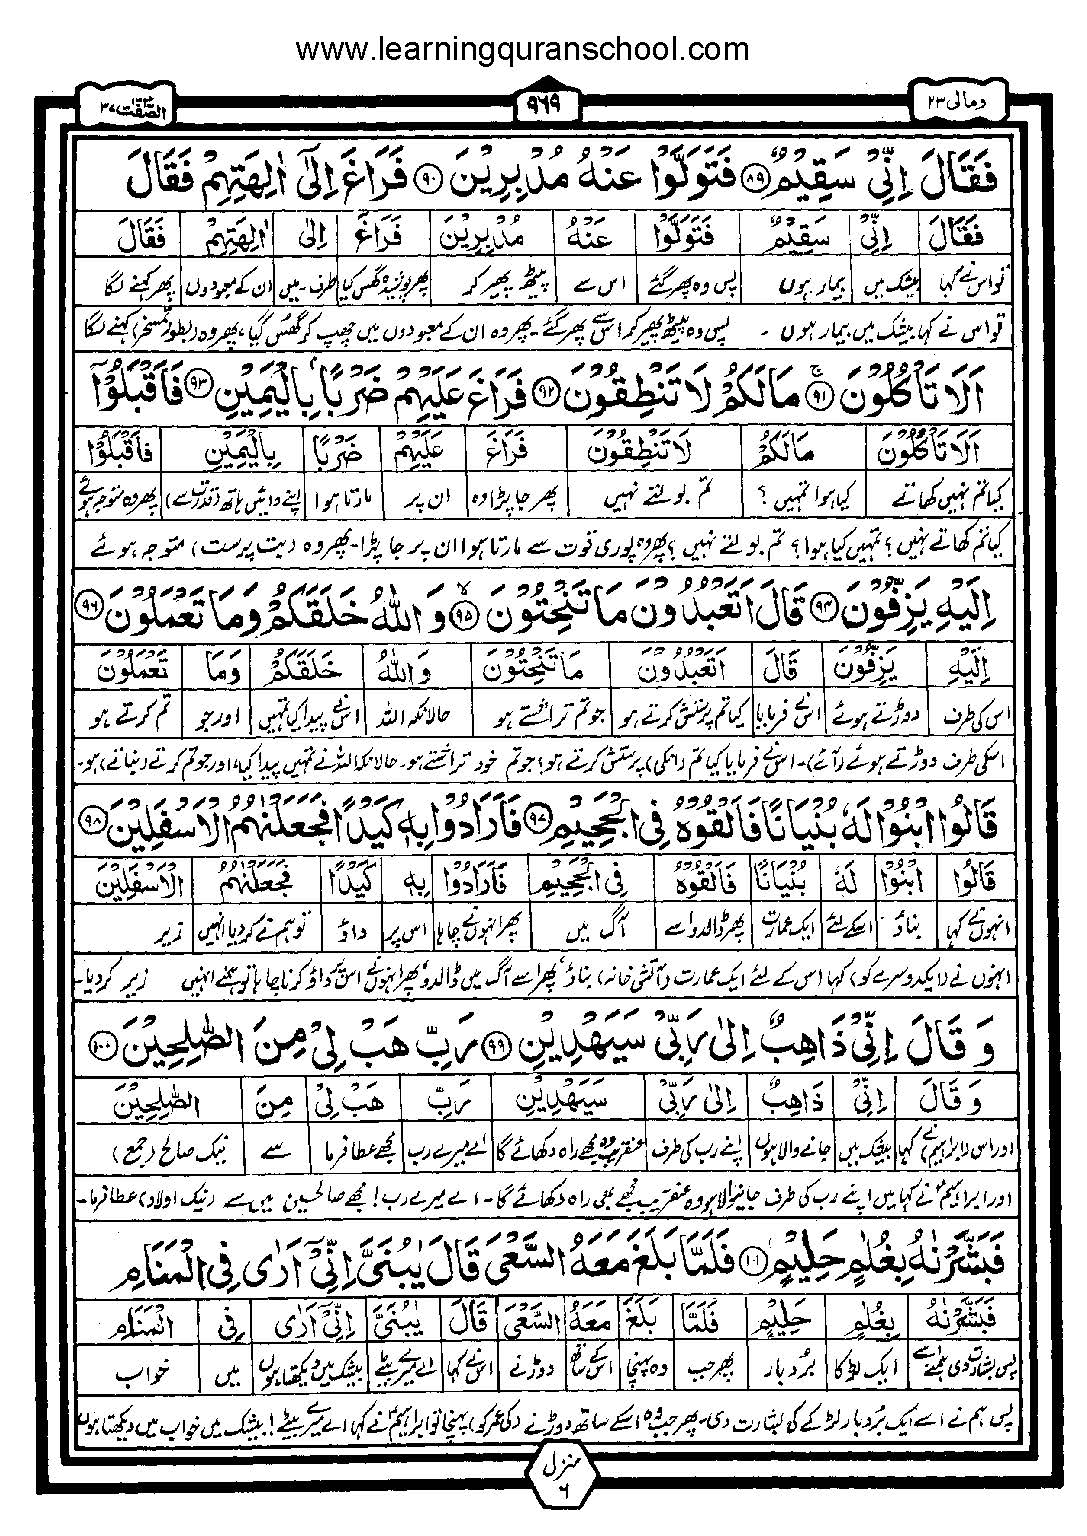 www.learningquranschool.com
ومالی ۲۳
۹۶۹
الصّٰفّٰت ۳۷
فَقَالَ اِنِّیْ سَقِیْمٌ ﴿۸۹﴾ فَتَوَلَّوْا عَنْهُ مُدْبِرِیْنَ ﴿۹۰﴾ فَرَاغَ اِلٰۤی اٰلِهَتِهِمْ فَقَالَ
فَقَالَ اِنِّیْ سَقِیْمٌ فَتَوَلَّوْا عَنْهُ مُدْبِرِیْنَ فَرَاغَ اِلٰی اٰلِهَتِهِمْ فَقَالَ
تو اس نے کہا بیشک میں بیمار ہوں پس وہ پھر گئے اس سے پیٹھ پھیر کر پھر پوشیدہ گھس گیا طرف۔میں ان کے معبودوں پھر کہنے لگا
تو اس نے کہا بیشک میں بیمار ہوں ۔ پس وہ پیٹھ پھیر کر اس سے پھر گئے۔ پھر وہ ان کے معبودوں میں چھپ کر گھس گیا، پھر وہ (بطور تمسخر) کہنے لگا
اَلَا تَاْكُلُوْنَ ﴿۹۱﴾ مَا لَكُمْ لَا تَنْطِقُوْنَ ﴿۹۲﴾ فَرَاغَ عَلَیْهِمْ ضَرْبًۢا بِالْیَمِیْنِ ﴿۹۳﴾ فَاَقْبَلُوْۤا
اَلَا تَاْكُلُوْنَ مَا لَكُمْ لَا تَنْطِقُوْنَ فَرَاغَ عَلَیْهِمْ ضَرْبًا بِالْیَمِیْنِ فَاَقْبَلُوْۤا
کیا تم نہیں کھاتے کیا ہوا تمہیں ؟ تم بولتے نہیں پھر جا پڑا وہ ان پر مارتا ہوا اپنے دائیں ہاتھ (قدرت سے) پھر وہ متوجہ ہوئے
کیا تم کھاتے نہیں ؟ تمہیں کیا ہوا؟ تم بولتے نہیں ؟ پھر وہ پوری قوت سے مارتا ہوا ان پر جا پڑا۔ پھر وہ (بت پرست) متوجہ ہوئے
اِلَیْهِ یَزِفُّوْنَ ﴿۹۴﴾ قَالَ اَتَعْبُدُوْنَ مَا تَنْحِتُوْنَ ﴿۹۵﴾ وَ اللّٰهُ خَلَقَكُمْ وَمَا تَعْمَلُوْنَ ﴿۹۶﴾
اِلَیْهِ یَزِفُّوْنَ قَالَ اَتَعْبُدُوْنَ مَا تَنْحِتُوْنَ وَاللّٰهُ خَلَقَكُمْ وَمَا تَعْمَلُوْنَ
اس کی طرف دوڑتے ہوئے اس نے فرمایا کیا تم پرستش کرتے ہو جو تم تراشتے ہو حالانکہ اللہ اس نے پیدا کیا تمہیں اور جو تم کرتے ہو
اسکی طرف دوڑتے ہوئے (آئے)۔ اس نے فرمایا کیا تم (انکی) پرستش کرتے ہو؟ جو تم خود تراشتے ہو۔ حالانکہ اللہ نے تمہیں پیدا کیا، اور جو تم کرتے (بناتے) ہو۔
قَالُوا ابْنُوْا لَهٗ بُنْیَانًا فَاَلْقُوْهُ فِی الْجَحِیْمِ ﴿۹۷﴾ فَاَرَادُوْا بِهٖ كَیْدًا فَجَعَلْنٰهُمُ الْاَسْفَلِیْنَ ﴿۹۸﴾
قَالُوا ابْنُوْا لَهٗ بُنْیَانًا فَاَلْقُوْهُ فِی الْجَحِیْمِ فَاَرَادُوْا بِهٖ كَیْدًا فَجَعَلْنٰهُمُ الْاَسْفَلِیْنَ
انہوں نے کہا بناؤ اسکے لئے ایک عمارت پھر ڈالدو اسے آگ میں پھر انہوں نے چاہا اس پر داؤ تو ہم نے کر دیا انہیں زیر
انہوں نے (ایک دوسرے کو) کہا اس کے لئے ایک عمارت (آتش خانہ) بناؤ پھر اسے آگ میں ڈالدو، پھر انہوں نے اس پر داؤ کرنا چاہا تو ہم نے انہیں زیر کر دیا۔
وَ قَالَ اِنِّیْ ذَاهِبٌ اِلٰی رَبِّیْ سَیَهْدِیْنِ ﴿۹۹﴾ رَبِّ هَبْ لِیْ مِنَ الصّٰلِحِیْنَ ﴿۱۰۰﴾
وَ قَالَ اِنِّیْ ذَاهِبٌ اِلٰی رَبِّیْ سَیَهْدِیْنِ رَبِّ هَبْ لِیْ مِنَ الصّٰلِحِیْنَ
اور اس (ابراہیم) نے کہا بیشک میں جانے والا ہوں اپنے رب کی طرف عنقریب وہ مجھے راہ دکھائے گا اے میرے رب مجھے عطا فرما سے نیک صالح (جمع)
اور ابراہیمؑ نے کہا میں اپنے رب کی طرف جانیوالا ہوں وہ عنقریب مجھے بھی راہ دکھائے گا۔ اے میرے رب! مجھے صالحین میں سے (نیک اولاد) عطا فرما۔
فَبَشَّرْنٰهُ بِغُلٰمٍ حَلِیْمٍ ﴿۱۰۱﴾ فَلَمَّا بَلَغَ مَعَهُ السَّعْیَ قَالَ یٰبُنَیَّ اِنِّیْۤ اَرٰی فِی الْمَنَامِ
فَبَشَّرْنٰهُ بِغُلٰمٍ حَلِیْمٍ فَلَمَّا بَلَغَ مَعَهُ السَّعْیَ قَالَ یٰبُنَیَّ اِنِّیْۤ اَرٰی فِی الْمَنَامِ
پس بشارت دی ہم نے اسے ایک لڑکا بردبار پھر جب وہ پہنچا اس کے ساتھ دوڑنے اس نے کہا اے میرے بیٹے بیشک میں دیکھتا ہوں میں خواب
پس ہم نے اسے ایک بردبار لڑکے کی بشارت دی۔ پھر جب وہ اسکے ساتھ دوڑنے (کی عمر کو) پہنچا تو ابراہیمؑ نے کہا اے میرے بیٹے! بیشک میں خواب میں دیکھتا ہوں
منزل ۶